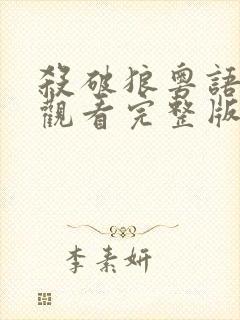 殺破狼粵語
觀看完整版
李素妍